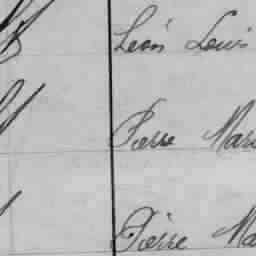 Léon Louis
Pierre Mar
Pierre Ma